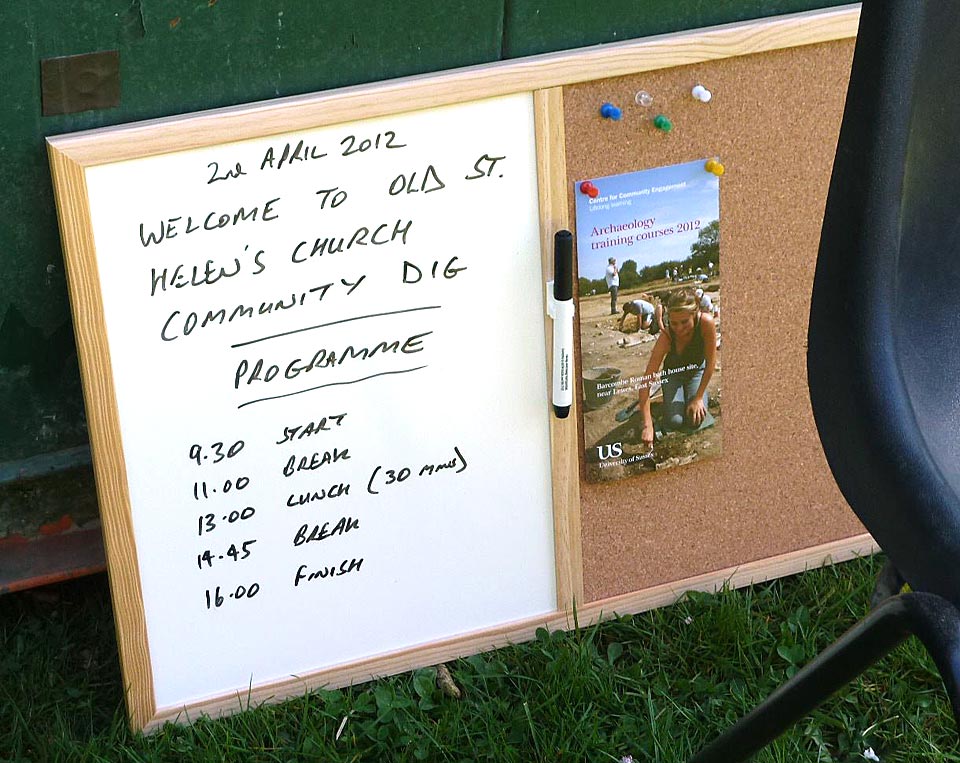 2nd APRIL 2012
WELCOME TO OLD ST.
HELEN'S CHURCH
COMMUNITY DIG
PROGRAMME
9.30 START
11.00 BREAK
13.00 LUNCH (30 MINS)
14.45 BREAK
16.00 FINISH
Centre for Community Engagement
Lifelong learning
Archaeology
training courses 2012
Barcombe Roman bath house site,
near Lewes, East Sussex
US
University of Sussex